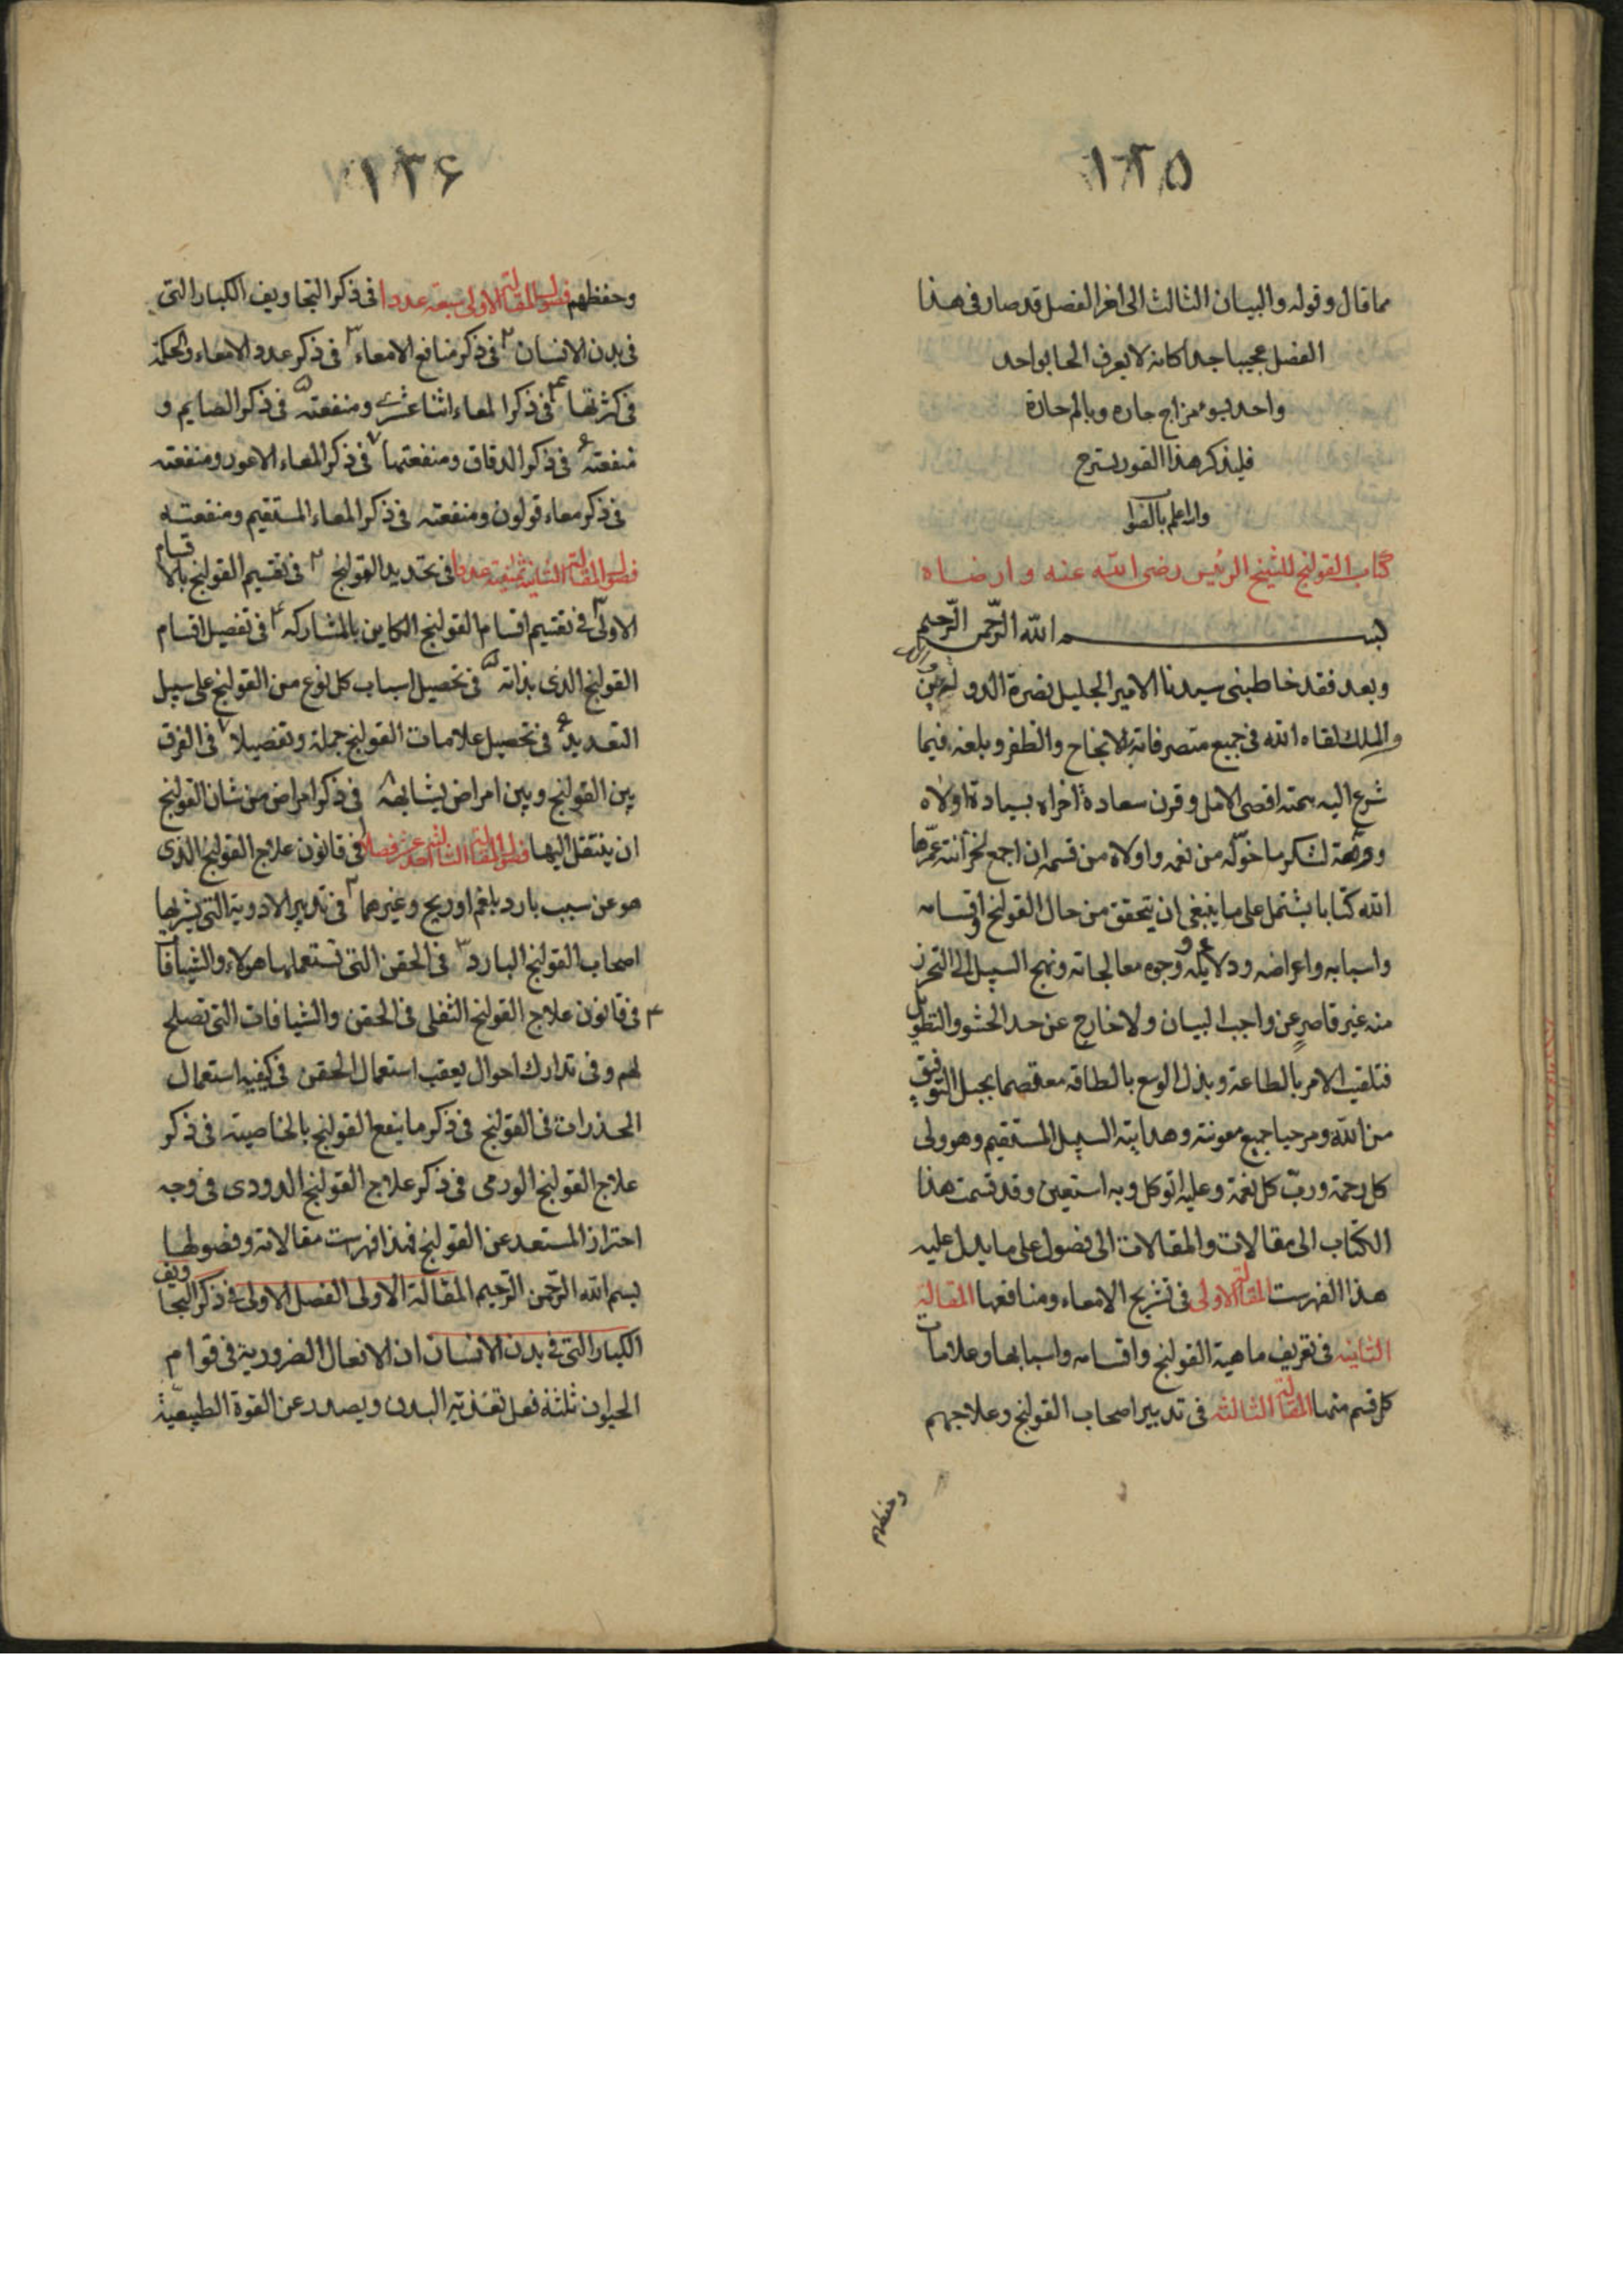 ١٢٥
مما قال و قوله والبيان الثالث الى اخر الفصل قد صار فى هذا
الفصل عجيبا جدا كانه لا يعرف الحا بواحد
واحد بسوء مزاج حاره وبالم حارة
فليذكر هذا القور يسترح
والله اعلم بالصواب
كتاب القولنج للشيخ الرئيس رضى الله عنه وارضاه
بسم الله الرحمن الرحيم
وبعد فقد خاطبنى سيدنا الامير الجليل نصرة الدولة وعين
والملك لقاه الله فى جميع متصرفاته الانجاح والظفر وبلغه فيما
شرع اليه همته اقصى الامل وقرن سعادة اخراه بسيادة اولاه
ووفقه لشكر ما خوله من نعمه واولاه من قسمه ان اجمع لخزانته عمرها
الله كتابا يشتمل على ما ينبغى ان يتحقق من حال القولنج واقسامه
واسبابه واعراضه ودلايله ووجوه معالجاته ونهج السبيل الى التحرز
منه غير قاصر عن واجب البيان ولا خارج عن حد الحشو والتطويل
فتلقيت الامر بالطاعة وبذل الوسع بالطاقه معتصما بحبل التوفيق
من الله ومرحيا جميع معونته وهدايته السبيل المستقيم وهو ولى
كل رحمة ورب كل نعمة وعليه اتوكل وبه استعين وقد قسمت هذا
الكتاب الى مقالات والمقالات الى فصول على ما يدل عليه
هذا الفهرست المقالة الاولى فى تشريح الامعاء ومنافعها المقالة
الثانيه فى تعريف ماهية القولنج واقسامه واسبابها وعلامات
كل قسم منها المقالة الثالثه فى تدبير اصحاب القولنج وعلاجهم
وحفظهم
١٣۶
وحفظهم فصول المقالة الاولى سبعة عددا فى ذكر التجاويف الكبار التى
فى بدن الانسان ٢ فى ذكر منافع الامعاء ٣ فى ذكر عدد الامعاء والحكمة
فى كثرتها ۴ فى ذكر المعاء اثنا عشرى ومنفعته ۵ فى ذكر الصايم و
منفعته ۶ فى ذكر الدقاق ومنفعتها ٧ فى ذكر المعاء الاعور ومنفعته
فى ذكر معاء قولون ومنفعته فى ذكر المعاء المستقيم ومنفعته
فصول المقالة الثانية ثمنية عددا فى تحديد القولنج ٢ فى تقسيم القولنج بالاقسام
الاولى ٣ فى تقسيم اقسام القولنج الكاين بالمشاركه ۴ فى تفصيل اقسام
القولنج الذى بذاته ۵ فى تحصيل اسباب كل نوع من القولنج على سبيل
التعديد ۶ فى تحصيل علامات القولنج جملة وتفصيلا ٧ فى الفرق
بين القولنج وبين امراض يشابهه ٨ فى ذكر امراض من شان القولنج
ان ينتقل اليها فصول المقالة الثالثة احد عشر فصلا فى قانون علاج القولنج الذى
هو عن سبب بارد بلغم او ريح وغيرهما ٢ فى تدبير الادوية التى يشربها
اصحاب القولنج البارد ٣ فى الحقن التى تستعملها هولاء والشيافات
۴ فى قانون علاج القولنج الثفلى فى الحقن والشيافات التى تصلح
لهم وفى تدارك احوال يعقب استعمال الحقن فى كيفيه استعمال
المخدرات فى القولنج فى ذكر ما ينفع القولنج بالخاصيته فى ذكر
علاج القولنج الورمى فى ذكر علاج القولنج الدودى فى وجه
احتراز المستعد عن القولنج فهذا فهرست مقالاته وفصولها
بسم الله الرحمن الرحيم المقالة الاولى الفصل الاولى فى ذكر التجاويف
الكبار التى فى بدن الانسان ان الافعال الضرورية فى قوام
الحيوان ثلثة فعل تغذية البدن ويصدر عن القوة الطبيعية